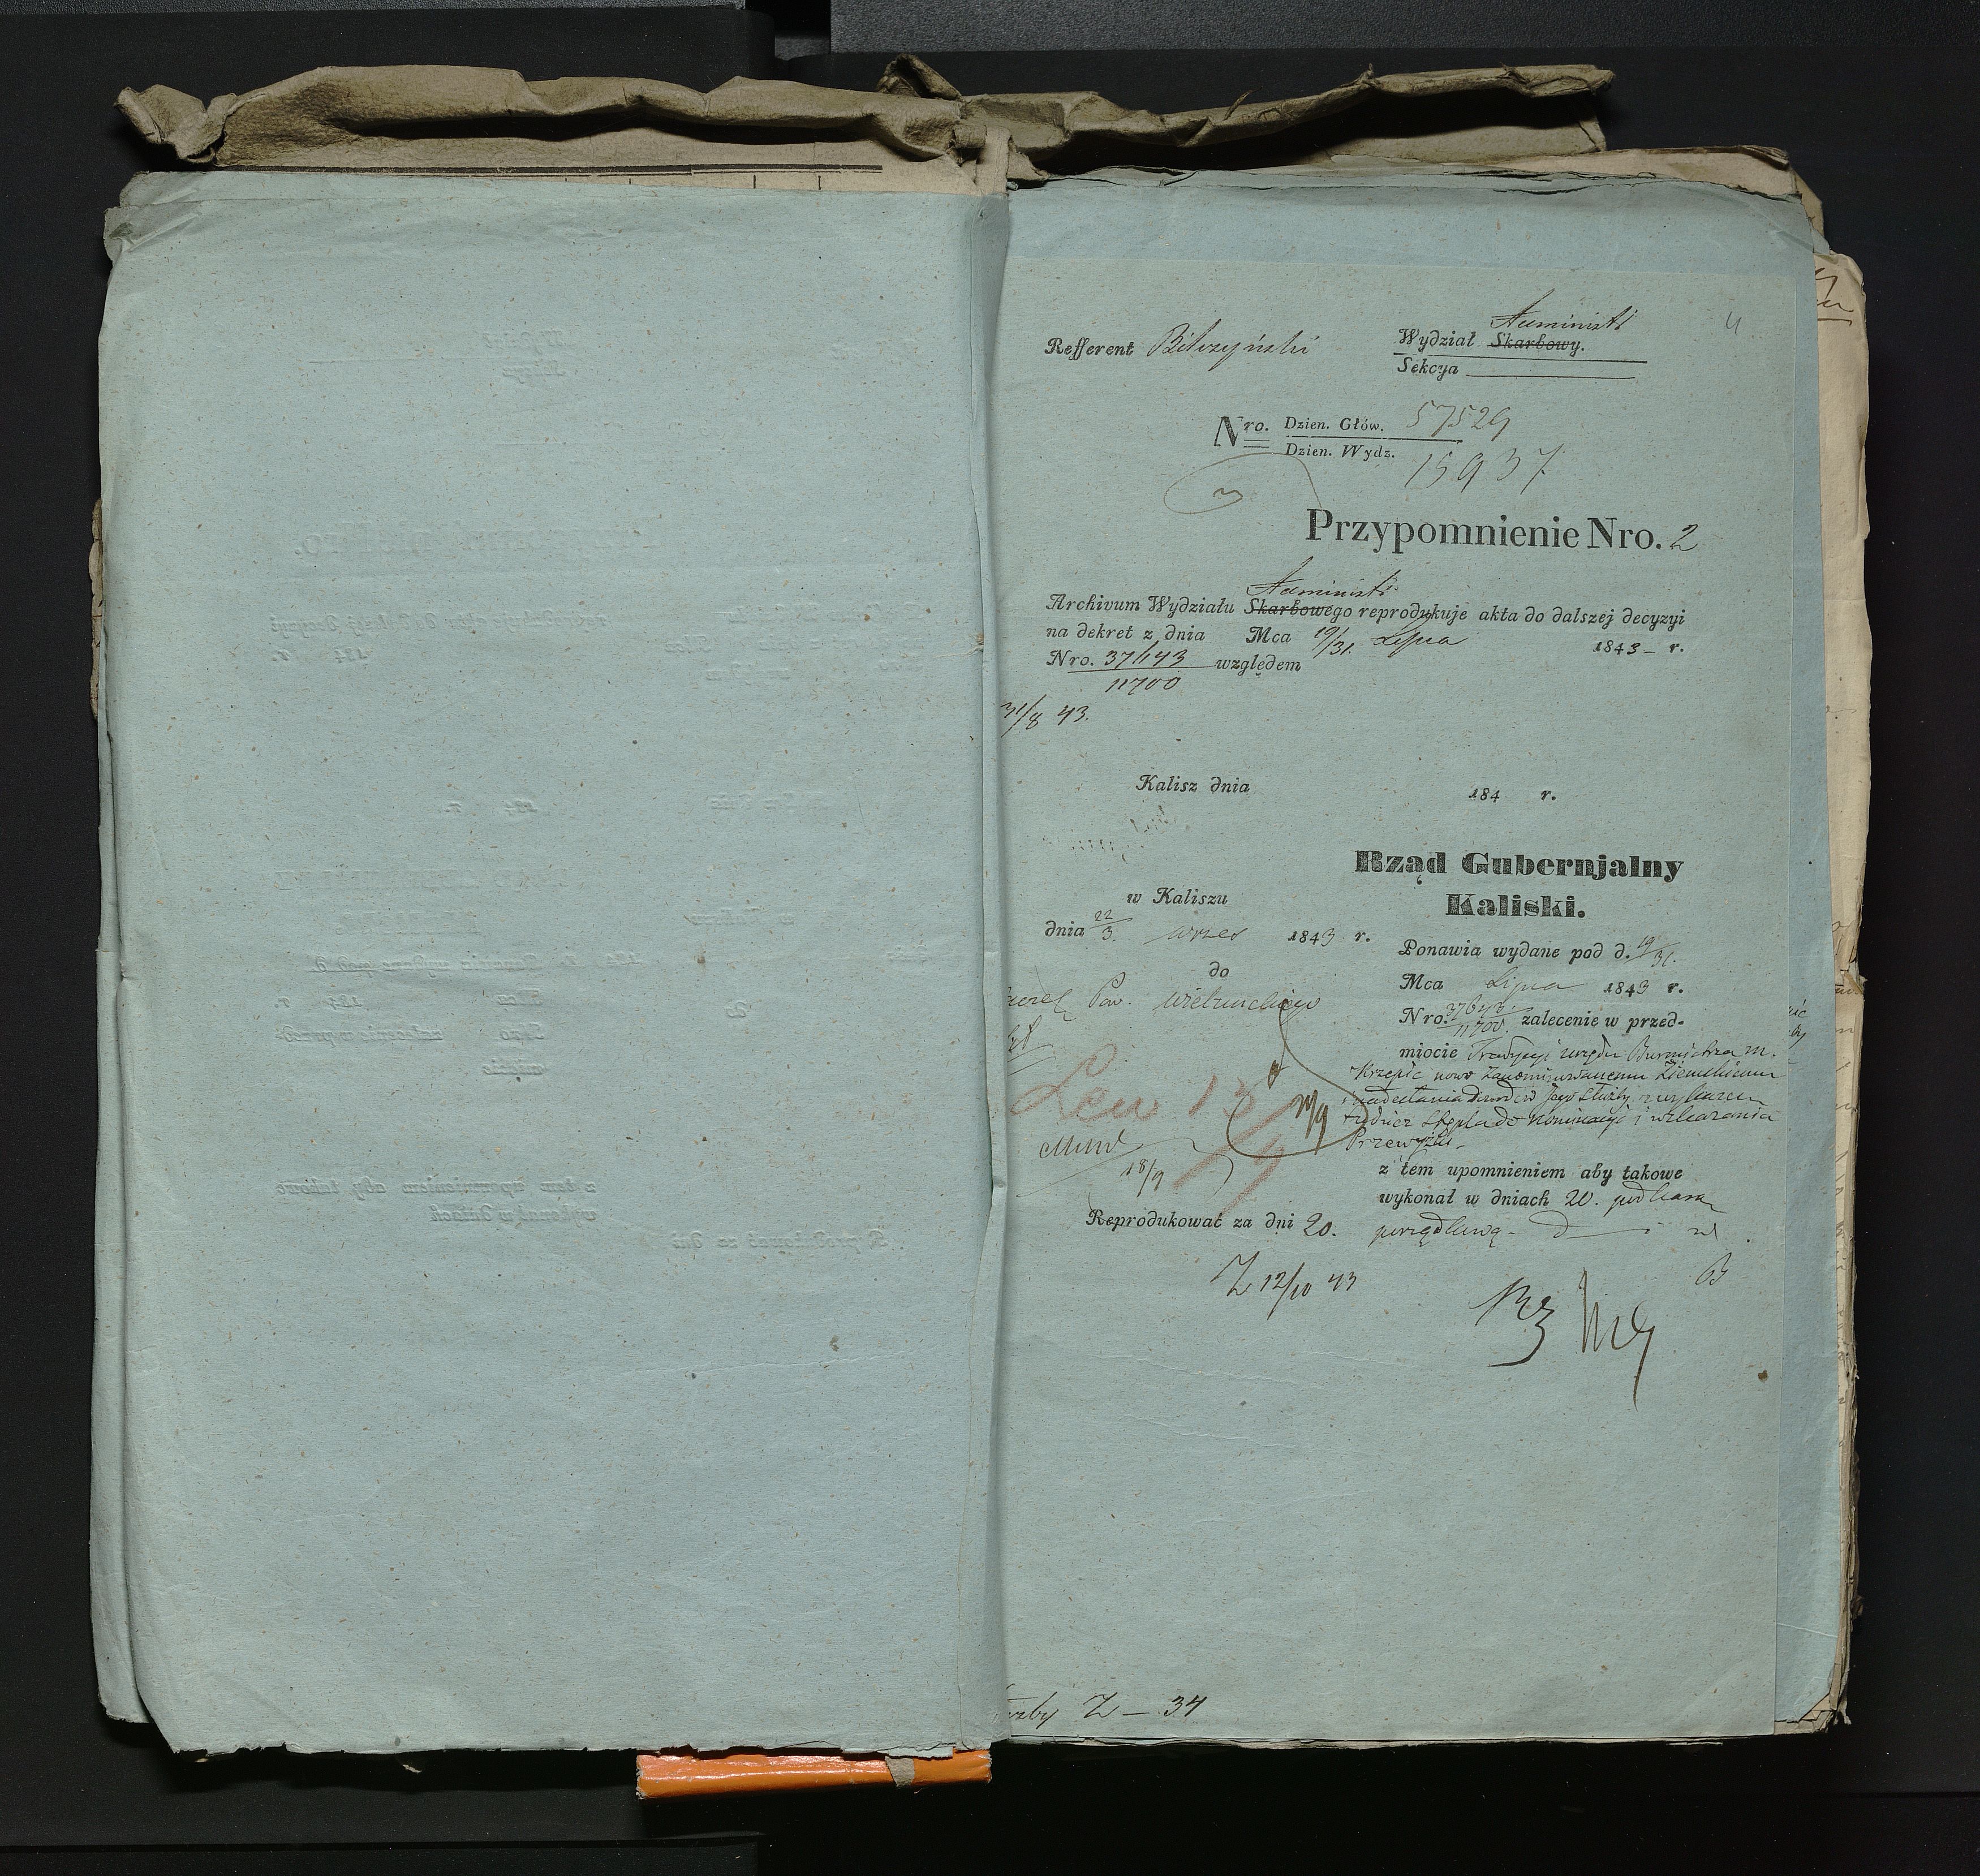 4
Administ
Refferent Bilczyński Wydział Skarbowy.
Sekcya
Nro. Dzien. Głów. 57529
Dzien. Wydz. 15937
3
Przypomnienie Nro. 2
Administ
Archivum Wydziału Skarbowego reprodukuje akta do dalszej decyzyi
na dekret z dnia Mca 19/31. Lipca 1843 r.
Nro. 37643 względem
11700
31/8 43.
Kalisz dnia 184 r.
Rząd Gubernjalny
Kaliski.
w Kaliszu
dnia 22/3. wrzes 1843 r.
do
Pow. Wieluńskiego
Ponawia wydane pod d. 19/31.
Mca Lipca 1843 r.
Nro. 37643/11700. zalecenie w przed-
miocie Tradycyi urzędu Burmistrza m.
Krzepic nowo zanominowanemu Ziemskiemu
i nadesłania dowodów jego służby
Stępla do Nominacyi i wskazania
Przewyżki
z tem upomnieniem aby takowe
wykonał w dniach 20. pod karą
porządkową
Leu 13/9
11/9
Mund
18/9
Reprodukować za dni 20.
Z 12/10 43
B
Z — 34